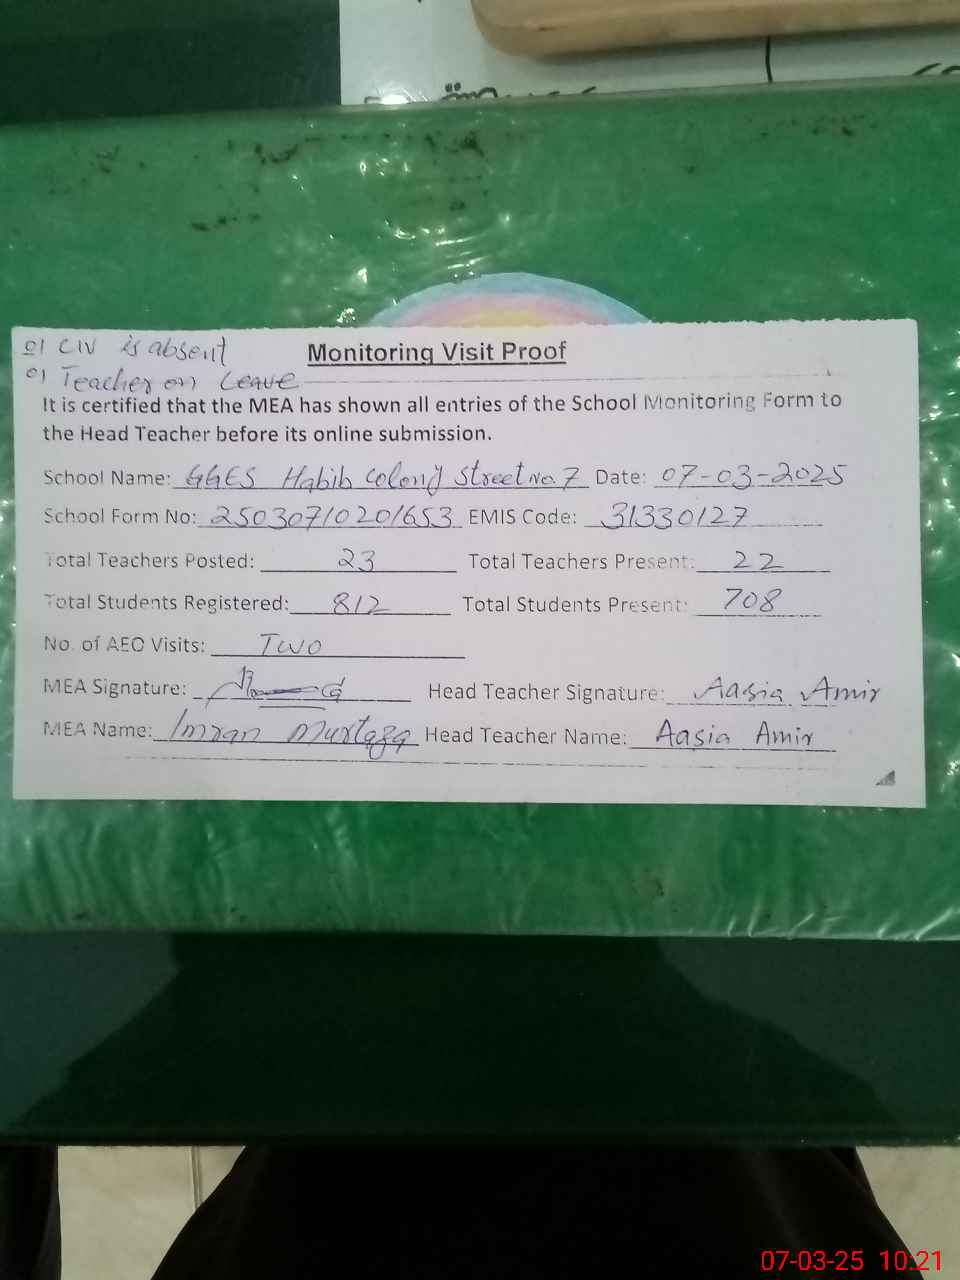 01 CIV is absent
01 Teacher on Leave
Monitoring Visit Proof
It is certified that the MEA has shown all entries of the School Monitoring Form to
the Head Teacher before its online submission.
School Name: GGES Habib Colony Street No. 7 Date: 07-03-2025
School Form No: 25030710201653 EMIS Code: 31330127
Total Teachers Posted: 23 Total Teachers Present: 22
Total Students Registered: 812 Total Students Present: 708
No. of AEO Visits: Two
MEA Signature: Head Teacher Signature: Aasia Amir
MEA Name: Imran Murtaza Head Teacher Name: Aasia Amir
07-03-25 10:21